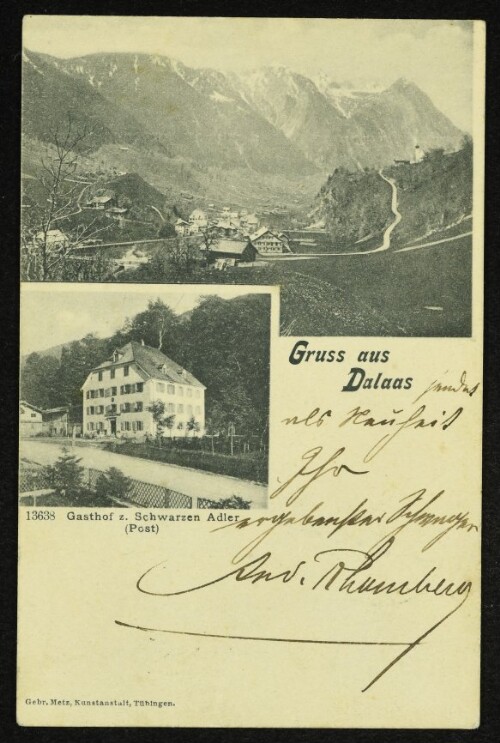 Gruss aus
Dalaas
sendet
als Neuheit
Ihr
ergebenster Schwager
And. Rhomberg
13638 Gasthof z. Schwarzen Adler
(Post)
Gebr. Metz, Kunstanstalt, Tübingen.